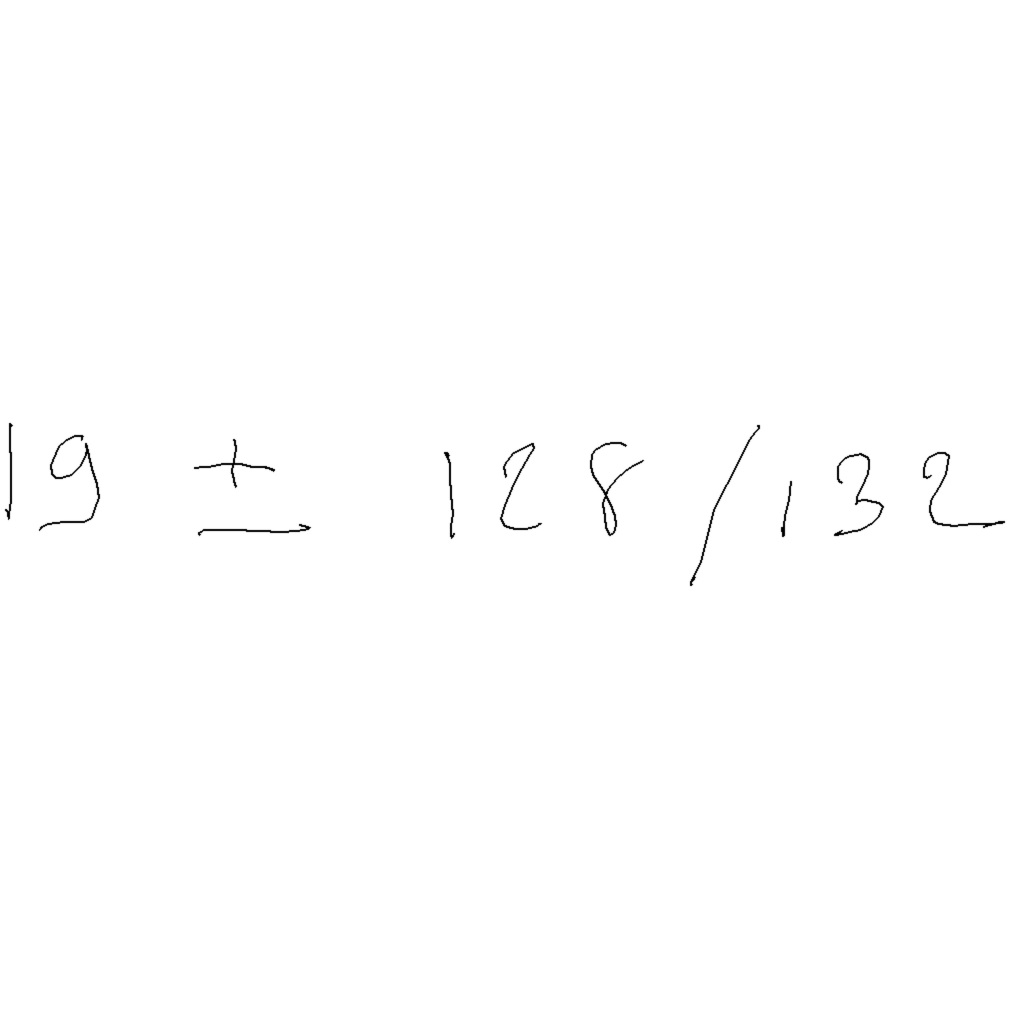 19 ± 128/132